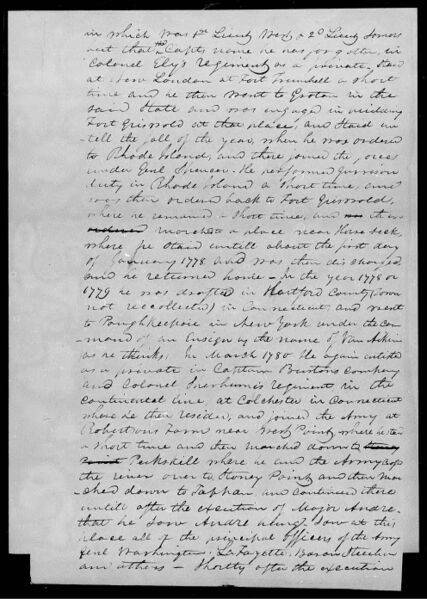 in which was 1st Lieut West & 2d Lieut Somers
but that the Capts name he has forgotten, in
Colonel Ely's Regiment as a private. Staid
at New London at Fort Trumbell a short
time and he then went to Groton in the
said State and was engaged in building
Fort Griswold at that place, and Staid un-
till the fall of the year, when he was ordered
to Rhode Island, and there joined the forces
under Genl Spencer. He performed Garrison
duty in Rhode Island a short time, and
was then ordered back to Fort Griswold,
where he remained a short time, and was then
ordered marched to a place near Horse Neck,
where he Staid untill about the first day
of January 1778 and was then discharged
and he returned home – In the year 1778 or
1779 he was drafted in Hartford County (Town
not recollected) in Connecticut, and went
to Poughkeepsie in New York under the com-
mand of an Ensign by the name of Van
as he thinks; in March 1780 He again enlisted
as a private in Captain Burtons Company
and Colonel Sherburne's regiment in the
Continental line, at Colchester in Connecticut
where he then resided, and joined the Army at
Robertsons Farm near West Point, where he lay
a short time and then marched down to Stoney
Point Peekskill where he and the Army cross
the river over to Stoney Point and then mar
ched down to Tappan, and continued there
untill after the execution of Major Andre.
that he Saw Andre hung. Saw at this
place all of the principal Officers of the Army
Genl Washington, La Fayette, Baron Steuben
and others – Shortly after the execution